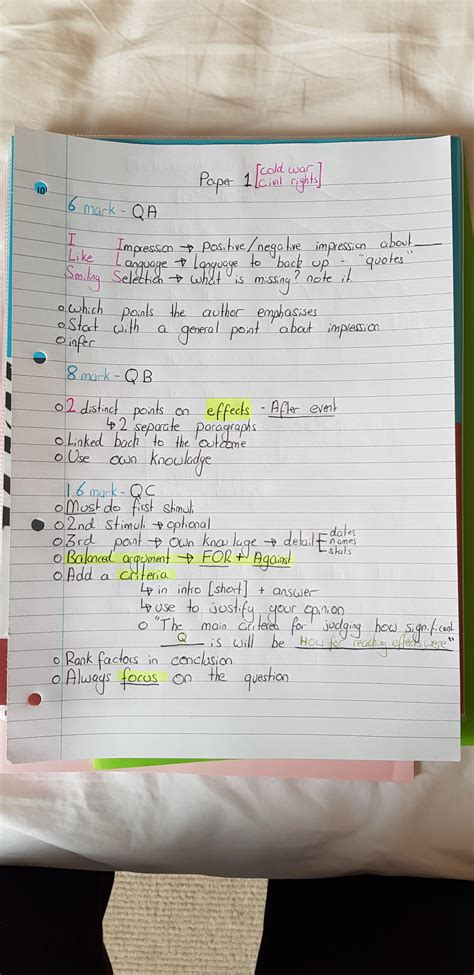 Paper 1 [cold war
civil rights]
10
6 mark - QA
I Impression → positive/negative impression about ___
Like Language → language to back up - "quotes"
Smiling Selection → what is missing? note it.
o which points the author emphasises
o Start with a general point about impression
o infer
8 mark - QB
o 2 distinct points on effects - After event
↳ 2 separate paragraphs
o Linked back to the outcome
o Use own knowledge
16 mark - QC
o Must do first stimuli
o 2nd stimuli → optional
o 3rd point → own knowlage → detail [dates
names
stats
o Balanced argument → FOR + Against
o Add a criteria
↳ in intro [short] + answer
↳ use to justify your opinion
o "The main criterea for judging how significant
Q is will be How far reaching effects were"
o Rank factors in conclusion
o Always focus on the question